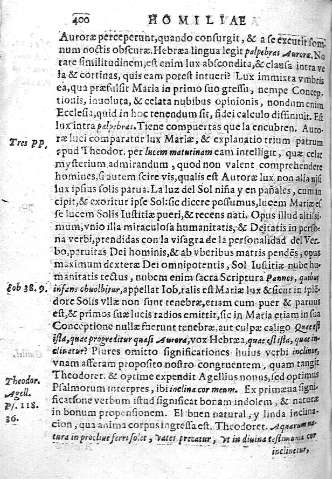 400 HOMILIAE
Auroræ perceperunt, quando consurgit, & a se excutit som-
num noctis obscuræ. Hebræa lingua legit palpebras Auroræ. No
tate similitudinem, est enim lux abscondita, & clausa intra ve
la & cortinas, quis eam potest intueri? Lux immixta vmbris
ea, qua præfulsit Maria in primo suo gressu, nempe Concep-
tionis, inuoluta, & celata nubibus opinionis, nondum enim
Ecclesia, quid in hoc tenendum sit, fidei calculo diffiniuit. Est
lux intra palpebras. Tiene compuertas que la encubren. Auro-
ræ luci comparatur lux Mariæ, & explanatio trium patrum
Tres PP.
apud Theodor. per lucem matutinam eam intelligit, quæ celat
mysterium admirandum, quod non valent comprehendere
homines, si autem scire vis, qualis est Auroræ lux, non alia nisi
lux ipsius solis parua. La luz del Sol niña y en pañales, cum in
cipit, & exoritur ipse Sol: se dicere possumus, lucem Mariæ es
se lucem Solis Iustitiæ pueri, & recens nati. Opus illud altissi-
mum, vnio illa miraculosa humanitatis, & Deitatis in perso-
na verbi, prendidas con la visagra de la personalidad del Ver-
bo, paruitas Dei hominis, & ab vberibus matris pendēs, opus
maximum dexteræ Dei omnipotentis, Sol Iustitiæ nube hu-
manitatis tectus, nubem enim sacra Scriptura Pannos, quibus
Iob 38. 9.
infans obuolbitur, appellat Iob, talis est Mariæ lux & sicut in lipi-
dore Solis vllæ non sunt tenebræ, etiam cum puer & paruus
est, & primos suæ lucis radios emittit, sic in Maria etiam in sua
Conceptione nullæ fuerunt tenebræ. aut culpæ caligo Quæ est
ista, quæ progreditur quasi Aurora, vox Hebræa, quæ est ista, quæ in-
clinatur? Plures omitto significationes huius verbi inclinor,
vnam afferam proposito nostro congruentem, quam tangit
Theodoret. & optime expendit Agellius nonus, sed optimus
Theodor.
Agell.
Ps. 118.
36.
Psalmorum interpres, ibi inclina cor meum. Ex primæua signi-
ficatione verbum istud significat bonam indolem, & naturæ
in bonum propensionem. El buen natural, y linda inclina-
cion, qua anima corpus ingressa est. Theodoret. Aquarum na-
tura in procliue ferri solet, vates precatur, vt in diuina testimonia cor
inclinetur,